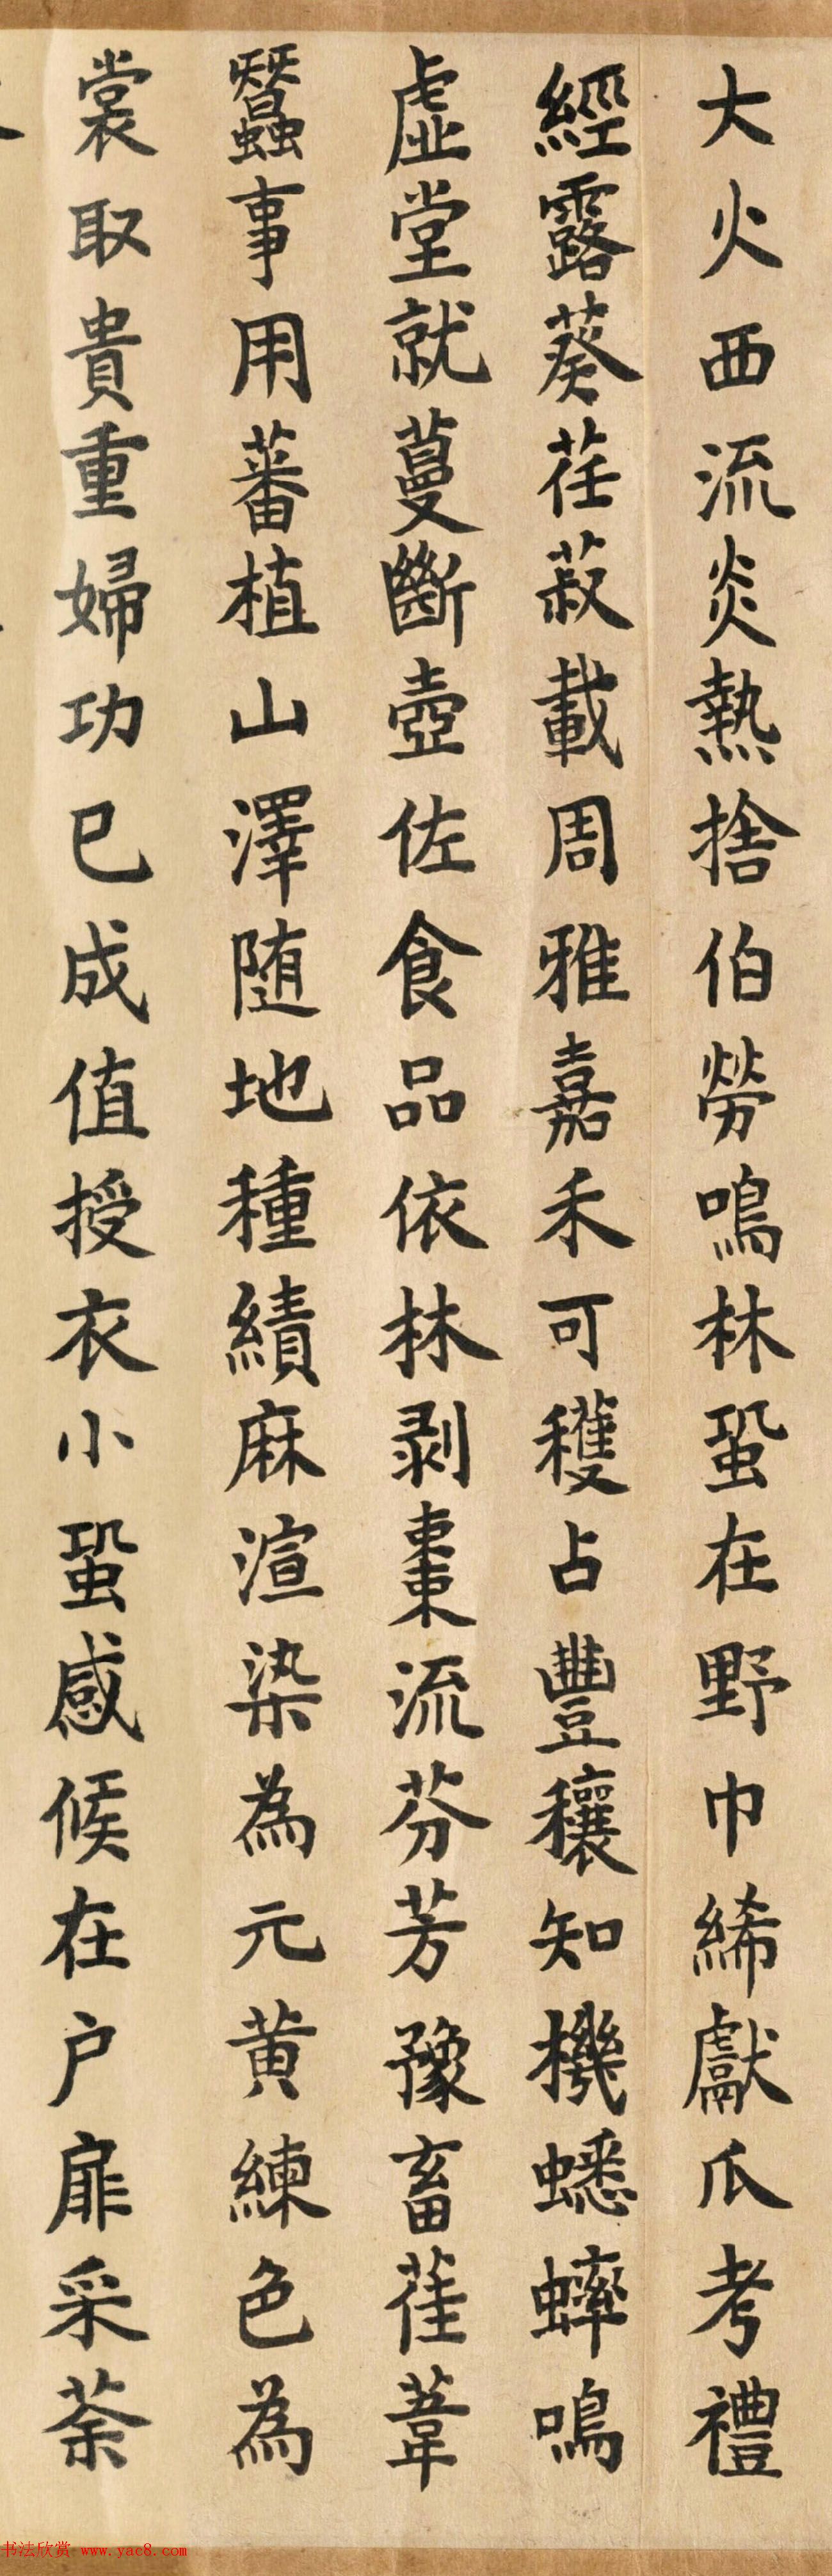 大火西流炎熱捨伯勞鳴林蛩在野巾絺獻瓜考禮
經露葵荏菽載周雅嘉禾可穫占豐穰知機蟋蟀鳴
虛堂就蔓斷壺佐食品依林剥棗流芬芳豫畜萑葦
蠶事用蕃植山澤随地種績麻渲染為元黄練色為
裳取貴重婦功已成值授衣小蛩感候在户扉采荼
书法欣赏 www.yac8.com